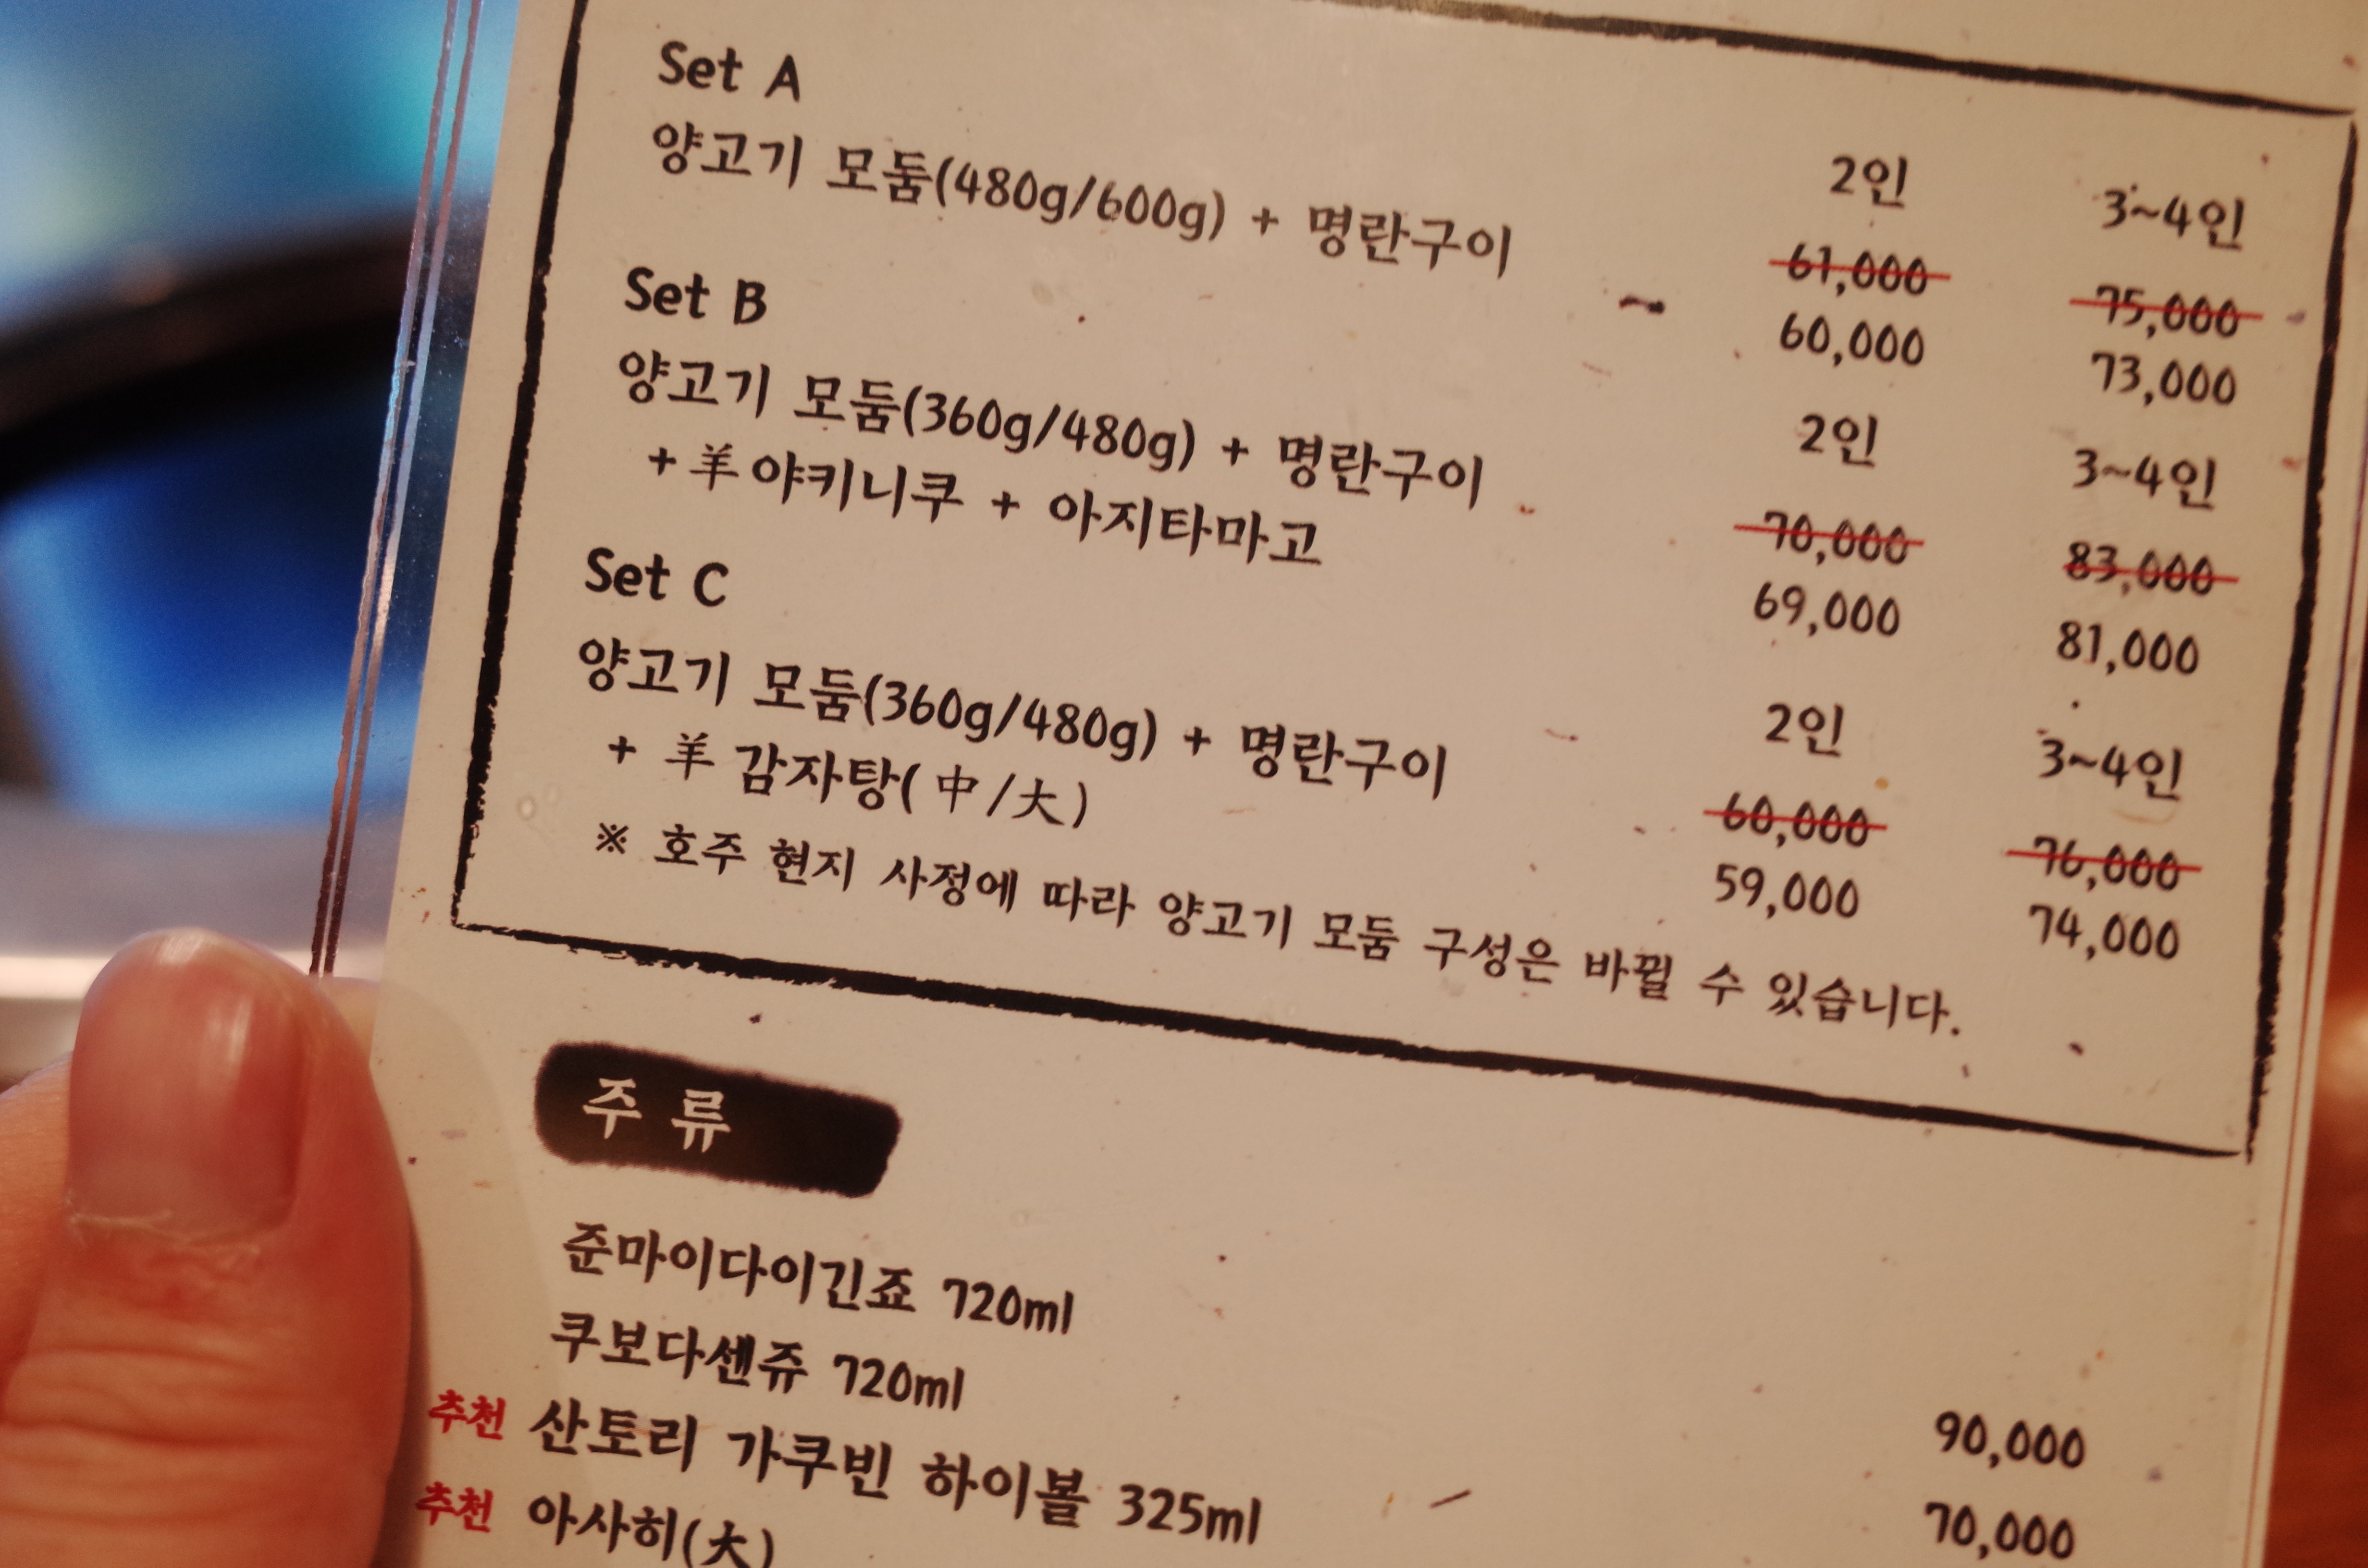 Set A
2인 3~4인
양고기 모둠(480g/600g) + 명란구이 61,000 75,000
60,000 73,000
Set B
2인 3~4인
양고기 모둠(360g/480g) + 명란구이 70,000 83,000
+ 羊야키니쿠 + 아지타마고 69,000 81,000
Set C
2인 3~4인
양고기 모둠(360g/480g) + 명란구이 60,000 76,000
+ 羊 감자탕(中/大) 59,000 74,000
※ 호주 현지 사정에 따라 양고기 모둠 구성은 바뀔 수 있습니다.
주류
준마이다이긴죠 720ml 90,000
쿠보다센쥬 720ml 70,000
추천 산토리 가쿠빈 하이볼 325ml
추천 아사히(大)